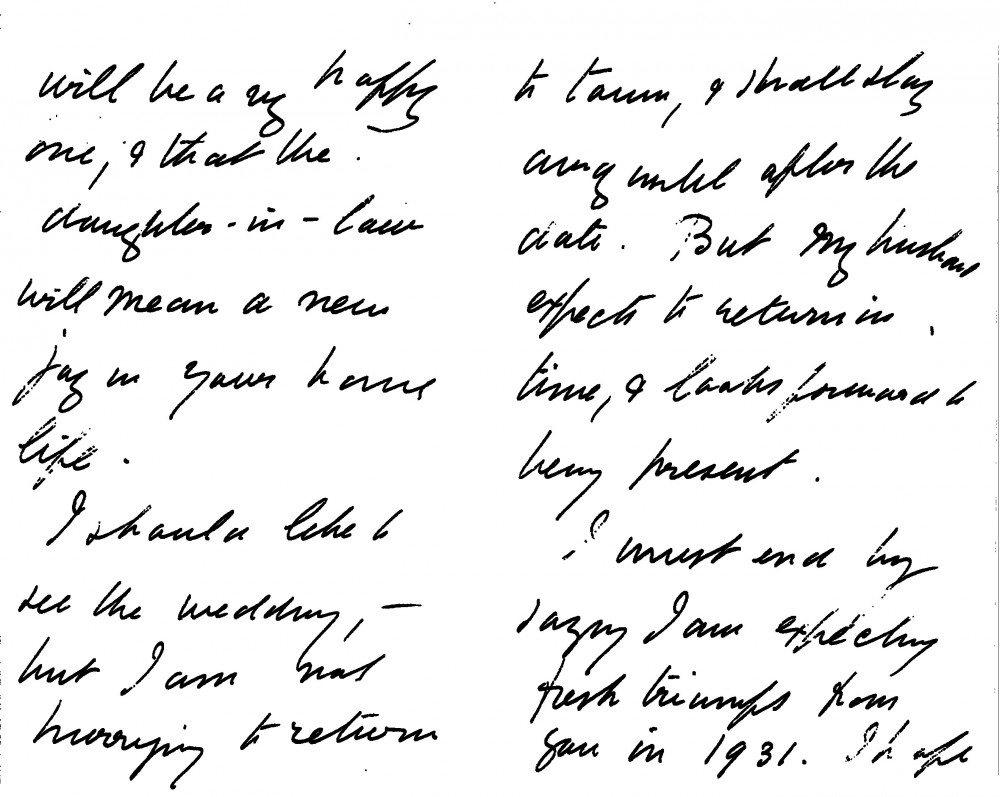 will be a vy happy
one, & that the
daughter-in-law
will mean a new
joy in your home
life.
I should like to
see the wedding, —
but I am not
hurrying to return
to town, & shall stay
away until after the
date. But my husband
expects to return in
time, & looks forward to
being present.
I must end by
saying I am expecting
fresh triumps from
you in 1931. I hope